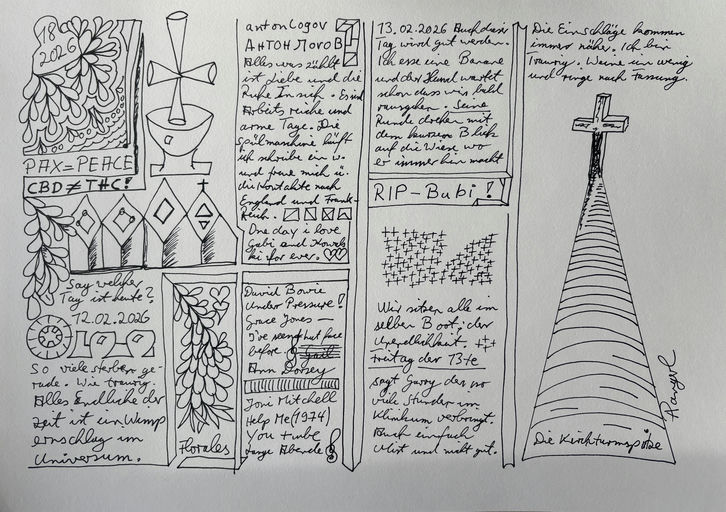 18
2026
PAX=PEACE
CBD≠THC!
Say welcher
Tag ist heute?
12.02.2026
So viele sterben ge-
rade. Wie traurig.
Alles Endliche der
Zeit ist ein Wimp
ernschlag im
Universum.
Florales
anton Logov
АНТОН ЛОГОВ
Alles was zählt
ist Liebe und die
Ruhe In sich. Es sind
Arbeitsreiche und
arme Tage. Die
Spülmaschine läuft
ich schreibe ein w.
und freue mich ü.
die Kontakte nach
England und Frank-
Reich.
One day i love
Gabi and
ki for ever.
David Bowie
Under Pressure!
Grace Jones —
I've seen that face
before.
Ann Dorsey
Joni Mitchell
Help Me (1974)
You tube
Lange Abende
13.02.2026 Auch dieser
Tag wird gut werden.
Ich esse eine Banane
und der Hund wartet
schon dass wir bald
rausgehen. Seine
Runde drehen mit
dem kurzen Blick
auf die Wiese, wo
er immer hin macht
RIP-Bubi!
Wir sitzen alle im
selben Boot, der
Unendlichkeit.
Freitag der 13-te
sagt Garry der so
viele Stunden im
Klinikum verbringt.
Auch einfach
Mist und nicht gut.
Die Einschläge kommen
immer näher. Ich bin
Traurig. Weine ein wenig
und ringe nach Fassung.
Die Kirchturmspitze